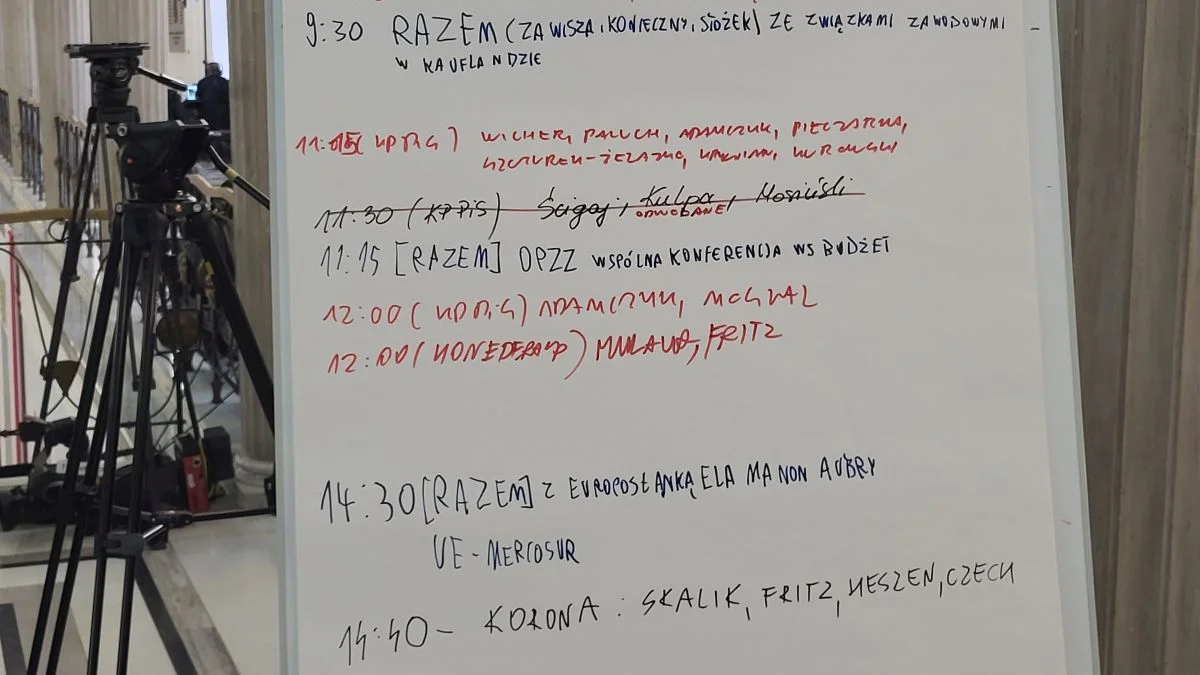 9:30 RAZEM (ZAWISZA, KONIECZNY, STOŻEK) ZE ZWIĄZKAMI ZAWODOWYMI
W KAUFLANDZIE
11:15 KPPiS) WICHER, PALUCH, ADAMCZYK, PIECZARKA,
SZCZUREK-ŻELAZKO, KUROWSKI
11:30 (KPPiS) Ścigaj, Kulpa, Mosiński
ODWOŁANE
11:15 [RAZEM] OPZZ WSPÓLNA KONFERENCJA WS BUDŻET
12:00 (KPPiS) ADAMCZYK,
12:00 (KONFEDERACJA) MULAWA, FRITZ
14:30 [RAZEM] Z EUROPOSŁANKĄ ELA MANON AUBRY
UE-MERCOSUR
14:40 - KORONA: SKALIK, FRITZ, HESZEN, CZECH